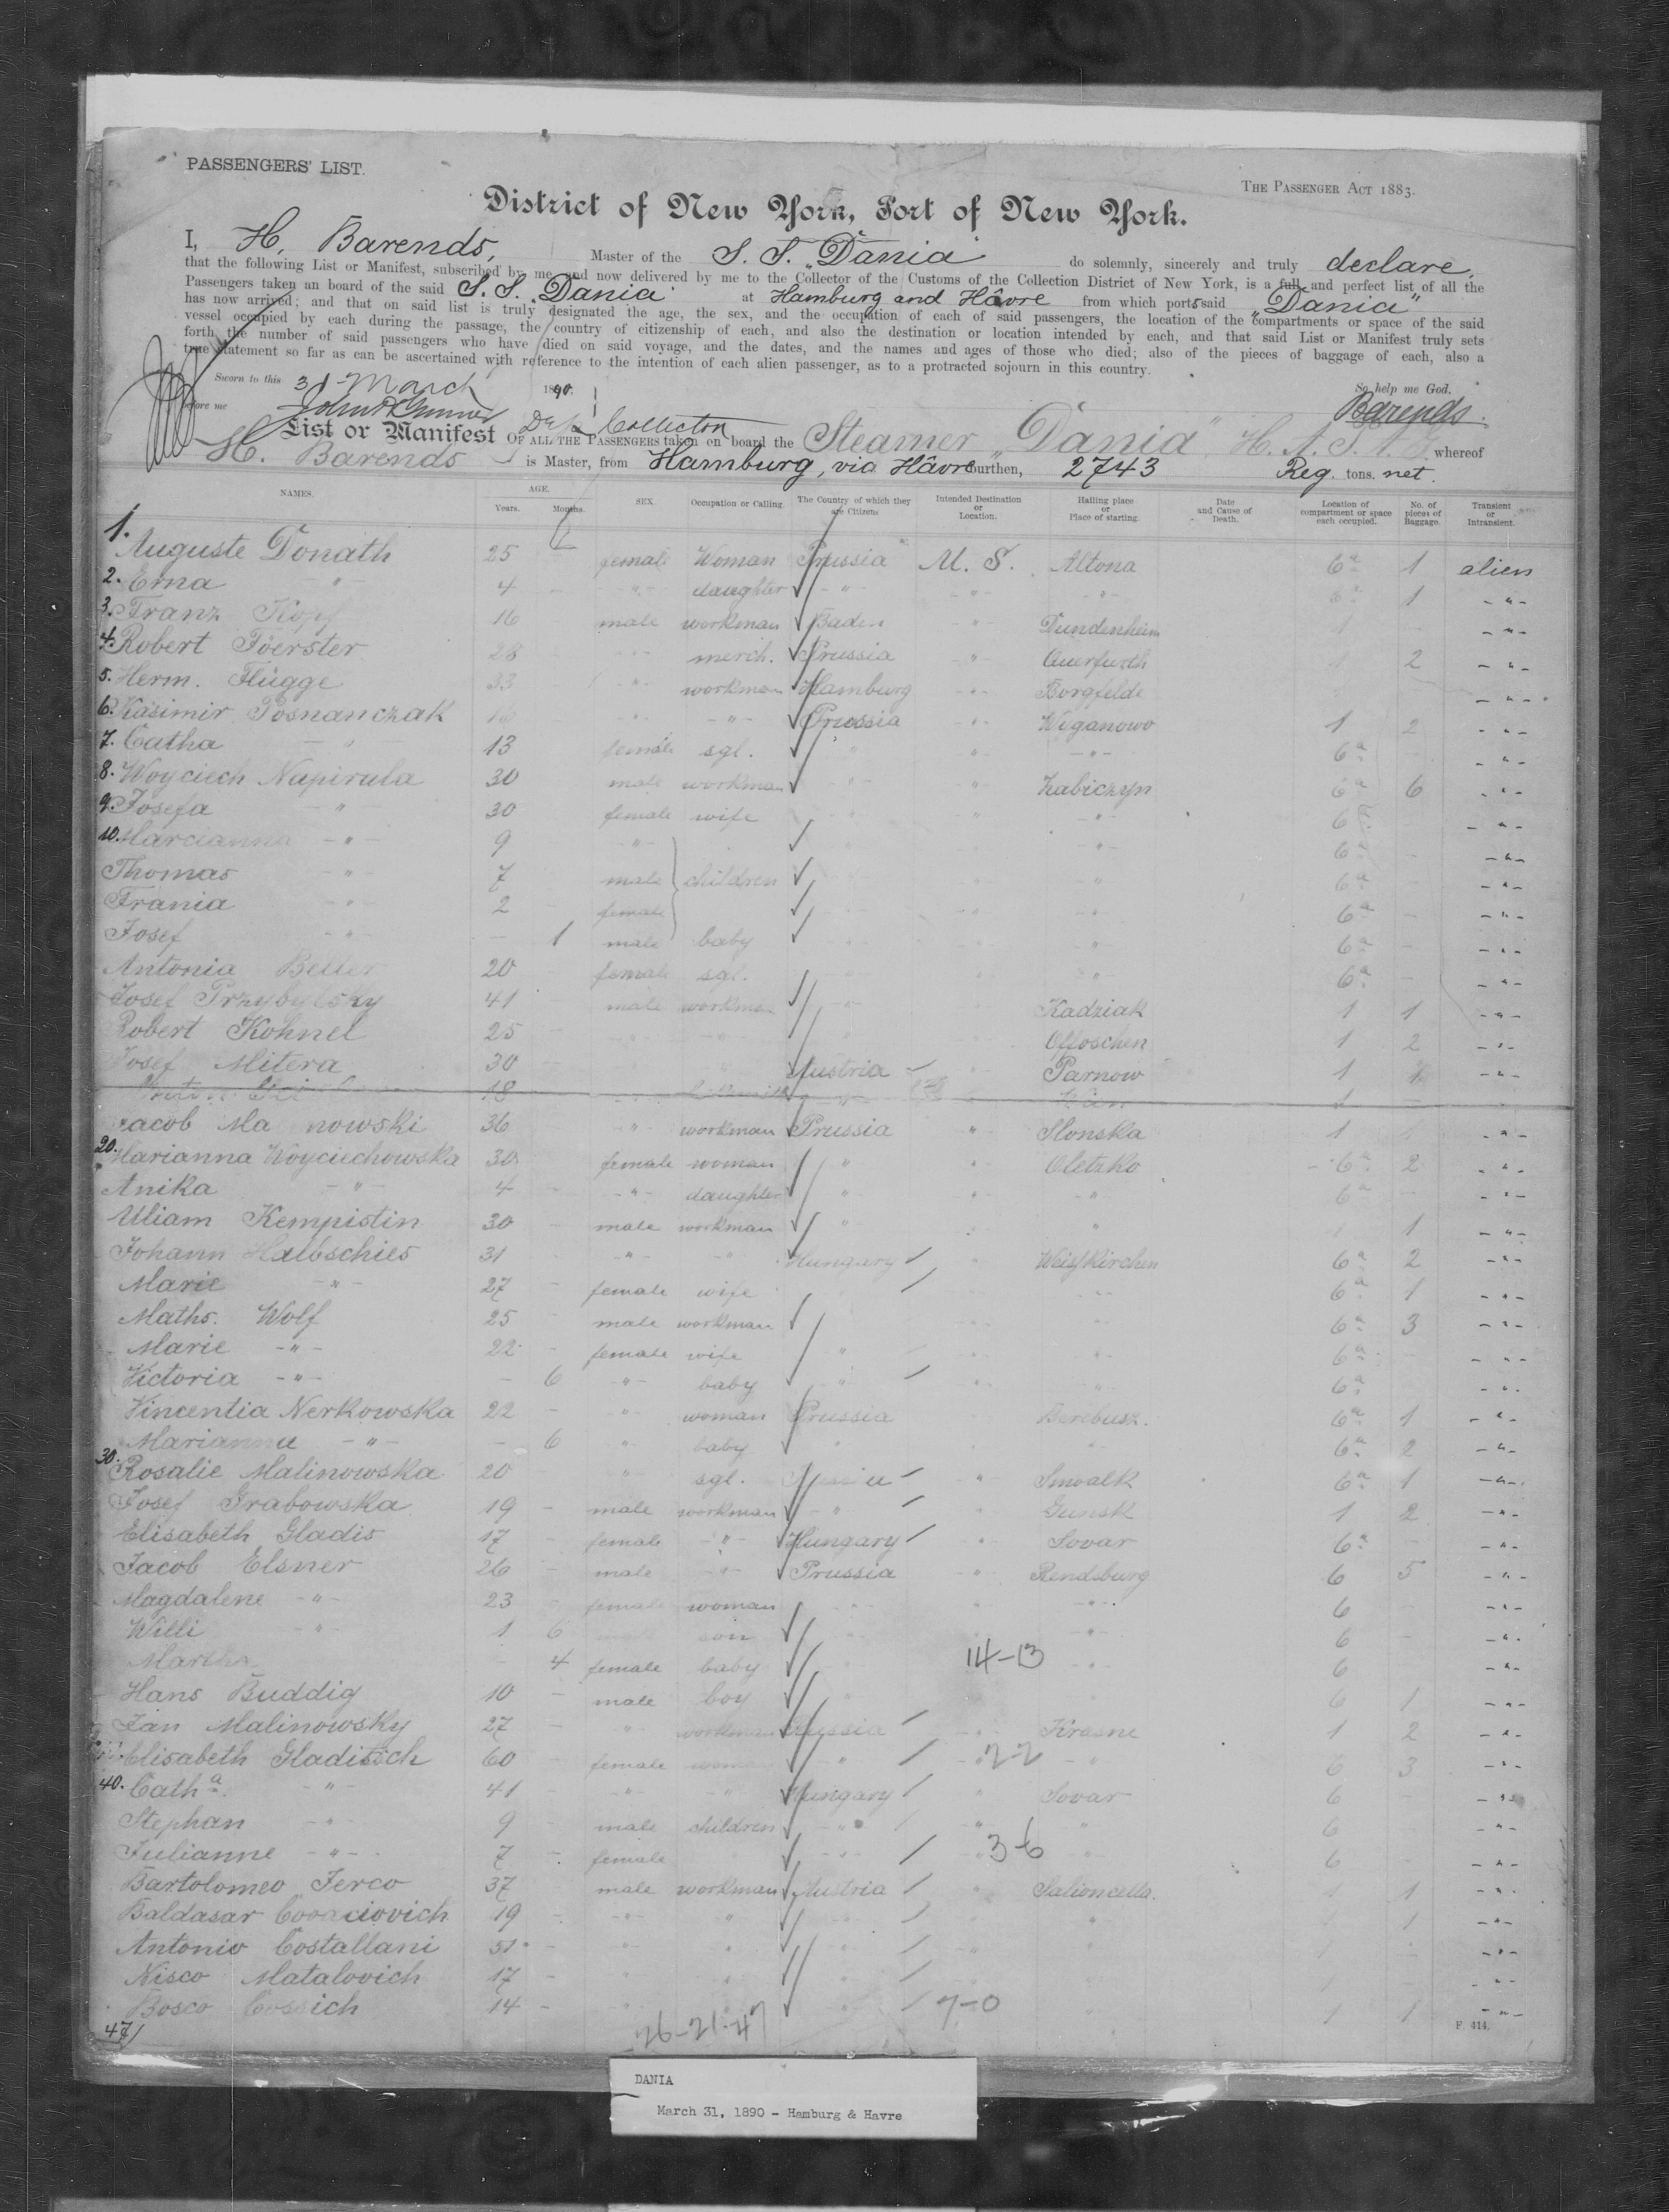 PASSENGERS' LIST.
THE PASSENGER ACT 1883.
District of New York, Port of New York.
I, H. Barends, Master of the S. S. "Dania" do solemnly, sincerely and truly declare
that the following List or Manifest, subscribed by me and now delivered by me to the Collector of the Customs of the Collection District of New York, is a full and perfect list of all the
Passengers taken an board of the said S. S. "Dania" at Hamburg and Hâvre from which ports said "Dania"
has now arrived; and that on said list is truly designated the age, the sex, and the occupation of each of said passengers, the location of the compartments or space of the said
vessel occupied by each during the passage, the country of citizenship of each, and also the destination or location intended by each, and that said List or Manifest truly sets
forth the number of said passengers who have died on said voyage, and the dates, and the names and ages of those who died; also of the pieces of baggage of each, also a
true statement so far as can be ascertained with reference to the intention of each alien passenger, as to a protracted sojourn in this country.
Sworn to this 31 March 1890. So help me God.
before me Barends.
Dep Collector
List or Manifest OF ALL THE PASSENGERS taken on board the Steamer "Dania" whereof
H. Barends is Master, from Hamburg, via Hâvre burthen, 2743 Reg. tons. net.
NAMES. AGE. Years. Months. SEX. Occupation or Calling. The Country of which they are Citizens Intended Destination or Location. Hailing place or Place of starting. Date and Cause of Death. Location of compartment or space each occupied. No. of pieces of Baggage. Transient or Intransient.
1. Auguste Donath 25 female Woman Prussia U. S. Altona 6a 1 alien
2. Erna -"- 4 -"- daughter -"- -"- -"- 6a 1 -"-
3. Franz Kopf 16 male workman Baden -"- Dundenheim 1 -"-
4. Robert Föerster 28 -"- merch. Prussia -"- Querfurth 1 2 -"-
5. Herm. Flügge 33 -"- workman Hamburg -"- Borgfelde -"-
6. Kasimir Posnanczak 16 -"- -"- Prussia -"- Wiganowo 1 2 -"-
7. Catha -"- 13 female sgl. -"- -"- -"- 6a -"-
8. Woyciech Napirula 30 male workman -"- -"- Zabiczyn 6a 6 -"-
9. Josefa -"- 30 female wife -"- -"- -"- 6a -"-
10. Marcianna -"- 9 -"- -"- -"- 6a -"-
Thomas -"- 7 male children -"- -"- 6a -"-
Frania -"- 2 female -"- -"- -"- 6a -"-
Josef -"- 1 male baby -"- -"- -"- 6a -"-
Antonia 20 female sgl. -"- -"- -"- 6a -"-
Josef Przybylsky 41 male workman -"- Kadziak 1 1 -"-
Robert Kohnel 25 -"- -"- -"- Offoschen 1 2 -"-
Josef Mitera 30 Austria Parnow 1 -"-
18 1
Jacob Ma nowski 36 -"- workman Prussia -"- Slonska 1 -"-
20. Marianna Woyciechowska 30 female woman -"- -"- Oletzko 6a 2 -"-
Anika -"- 4 -"- daughter -"- -"- -"- 6a -"-
Uliam Kempistin 30 male workman -"- -"- -"- 1 -"-
Johann Halbschies 31 -"- -"- Hungary -"- Weisskirchen 6a 2 -"-
Marie -"- 27 female wife -"- 6a 1 -"-
Maths. Wolf 25 male workman -"- 6a 3 -"-
Marie -"- 22 female wife -"- -"- 6a -"-
Victoria -"- 6 -"- baby -"- -"- -"- 6a -"-
Vincentia Nerkowska 22 -"- woman Prussia 6a 1 -"-
Marianne -"- 6 -"- baby -"- -"- 6a 2 -"-
30. Rosalie Malinowska 20 -"- sgl. -"- Suwalk 6a 1 -"-
Josef Grabowska 19 male workman -"- -"- Gunsk 1 2 -"-
Elisabeth Gladis 17 female -"- Hungary -"- Sovar 6a -"-
Jacob Elsner 26 male -"- Prussia -"- Rendsburg 6 5 -"-
Magdalene -"- 23 female woman -"- -"- -"- 6 -"-
Willi -"- 1 6 son -"- -"- 6 -"-
Martha 4 female baby -"- 14-13 -"- 6 -"-
Hans Buddig 10 male boy -"- 6 1 -"-
Jan Malinowsky 27 -"- workman Russia -"- Krasne 1 2 -"-
Elisabeth Gladitsch 60 female woman -"- 2-2 -"- 6 3 -"-
40. Catha. -"- 41 -"- -"- Hungary -"- Sovar 6 -"-
Stephan -"- 9 male children -"- -"- -"- 6 -"-
Julianne -"- 7 female -"- 3-6 -"- 6 -"-
Bartolomeo Ferco 37 male workman Austria -"- Salioncella. 1 1 -"-
Baldasar Covaciovich 19 -"- -"- -"- -"- -"- 1 -"-
Antonio Costallani 51 -"- -"- -"- -"- 1 -"-
Nisco Matalovich 17 -"- -"- -"- 1 -"-
Bosco Cossich 14 -"- -"- -"- 7-0 1 1 -"-
47/ 26-21-47 F. 414.
DANIA
March 31, 1890 - Hamburg & Havre